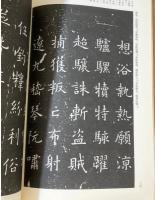 想浴執熱願涼
驢騾犢特駭躍
超驤誅斬賊盜
捕獲叛亡布射
遼丸嵇琴阮嘯
釋紛利俗